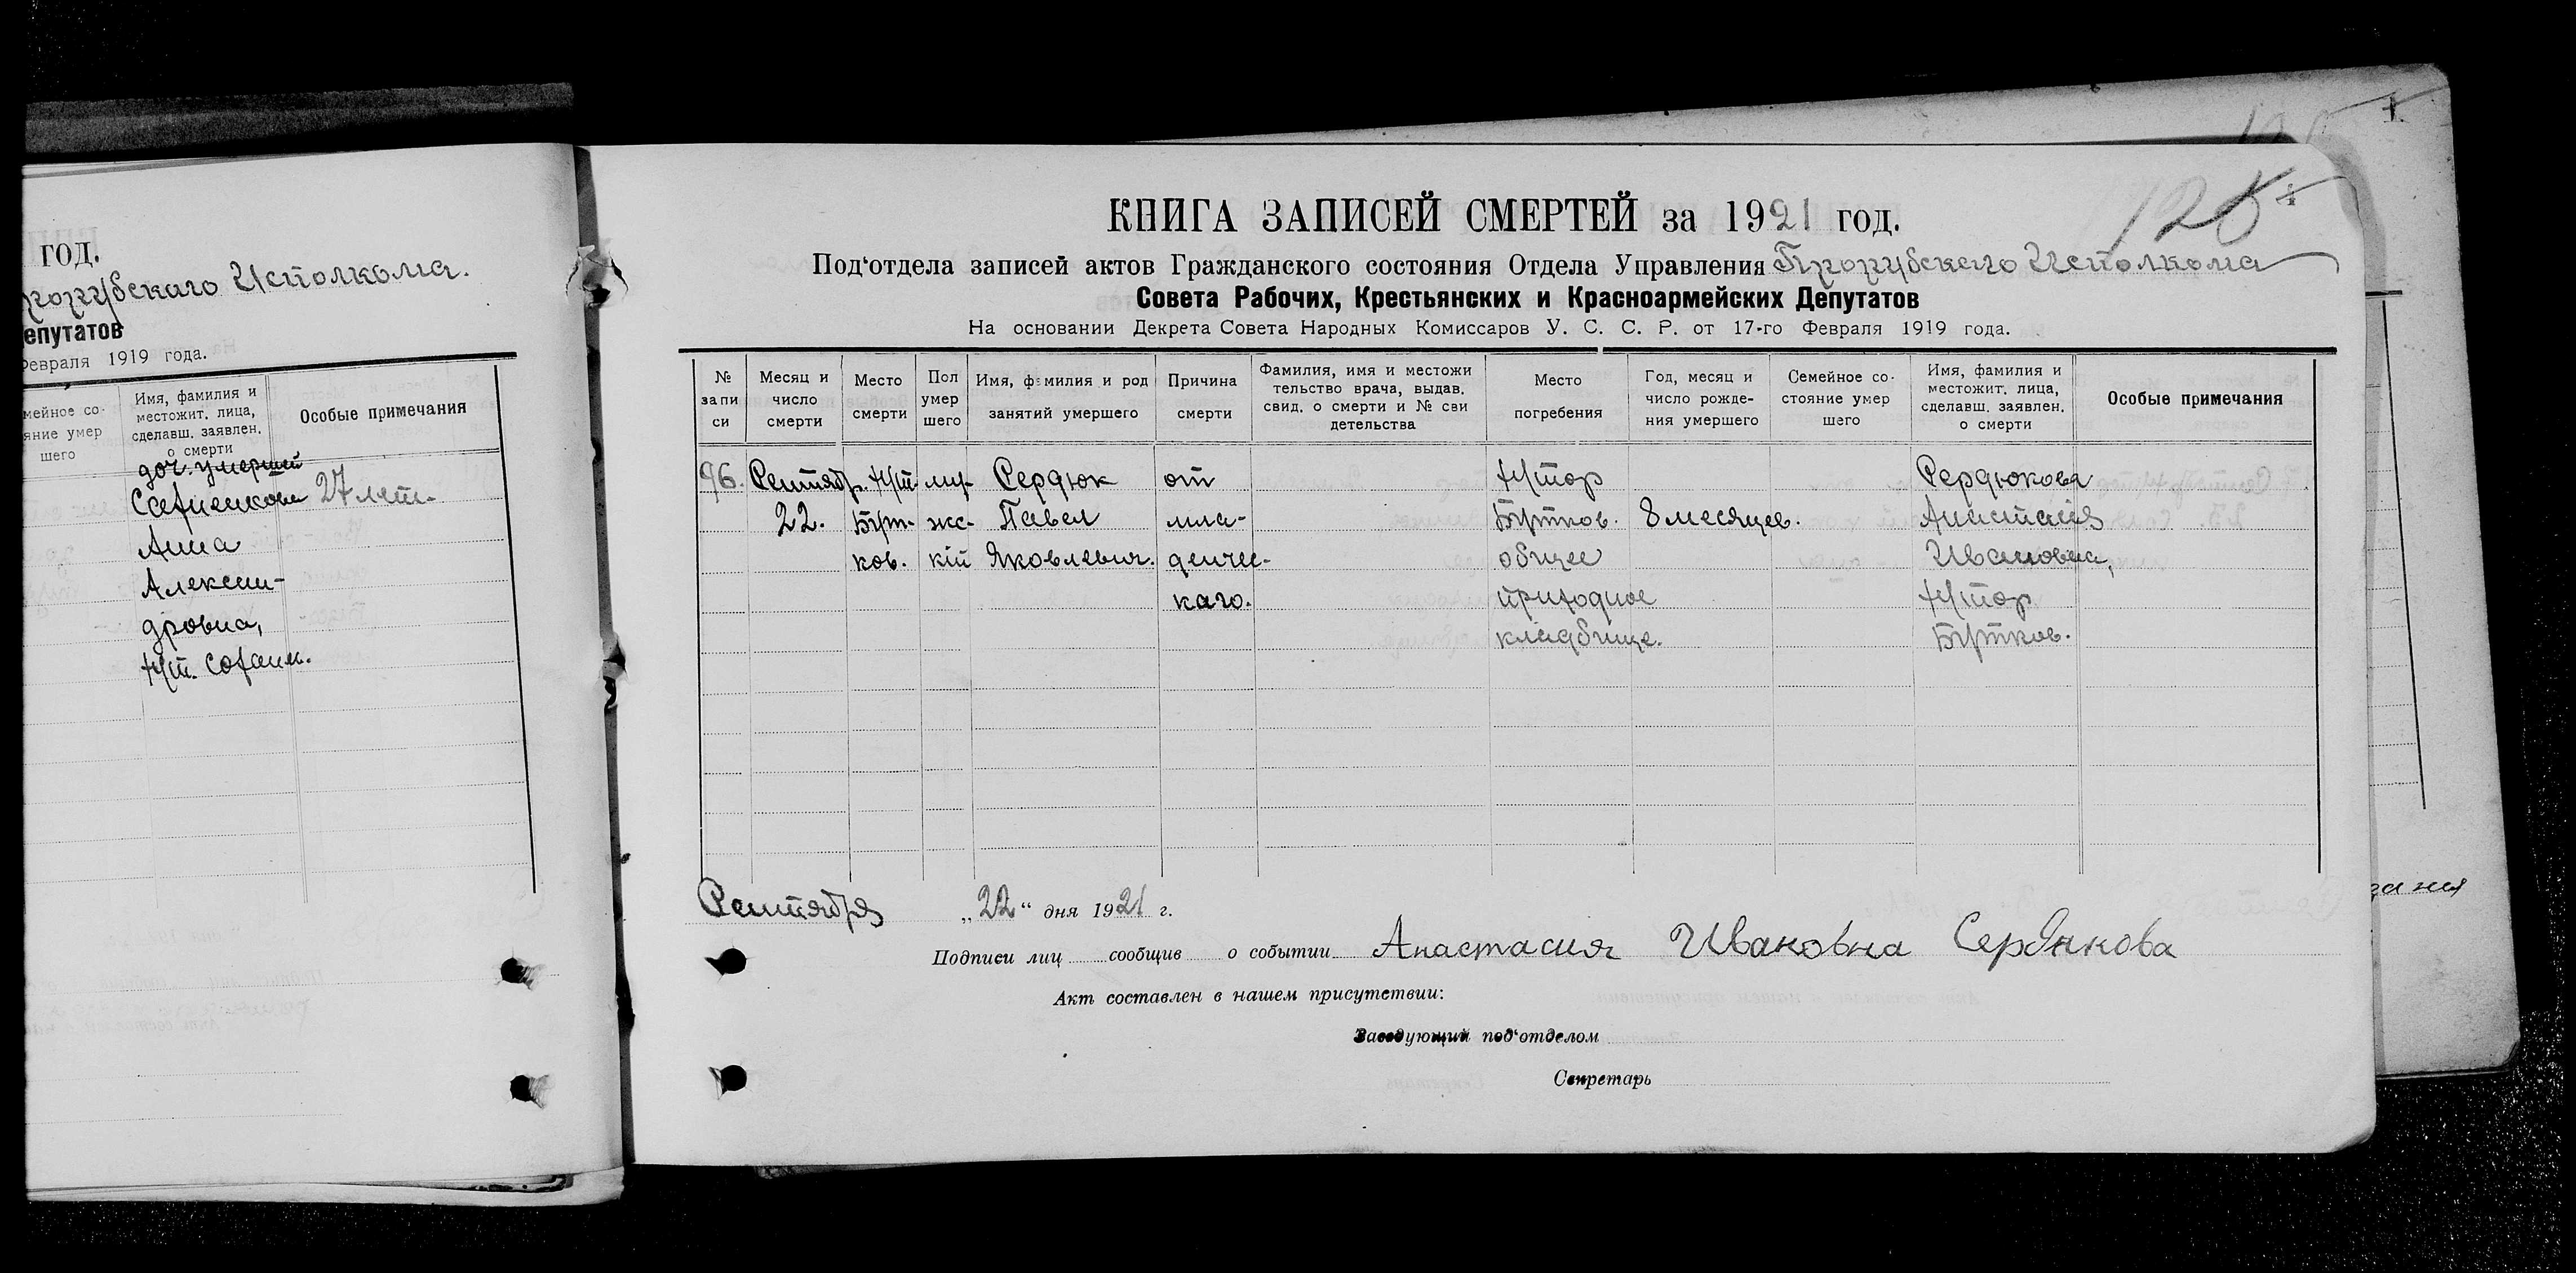 год.
Исполкома.
епутатов
Февраля 1919 года.
мейное со-
яние умер
шего
Имя, фамилия и
местожит. лица,
сделавш. заявлен.
о смерти
Особые примечания
доч. умершей
27 лет.
Анна
Алексан-
дровна,
Хут.
КНИГА ЗАПИСЕЙ СМЕРТЕЙ за 1921 год.
125
Под‘отдела записей актов Гражданского состояния Отдела Управления Исполкома
Совета Рабочих, Крестьянских и Красноармейских Депутатов
На основании Декрета Совета Народных Комиссаров У. С. С. Р. от 17-го Февраля 1919 года.
№
запи
си
Месяц и
число
смерти
Место
смерти
Пол
умер
шего
Имя, фамилия и род
занятий умершего
Причина
смерти
Фамилия, имя и местожи
тельство врача, выдав.
свид. о смерти и № сви
детельства
Место
погребения
Год, месяц и
число рожде-
ния умершего
Семейное со-
стояние умер
шего
Имя, фамилия и
местожит. лица,
сделавш. заявлен.
о смерти
Особые примечания
96.
Сентябр.
22.
Хут.
Бут-
ков.
му-
жс-
кій
Сердюк
Павел
Яковлевич.
от
мла-
денчес-
каго.
Хутор
Бутков.
общее
приходное
кладбище.
8 месяцев.
Сердюкова
Анастасія
Ивановна,
Хутор
Бутков.
Сентября „22“ дня 1921 г.
Подписи лиц сообщив о событии Анастасия Ивановна Сердюкова
Акт составлен в нашем присутствии:
Заведующий под‘отделом
Секретарь